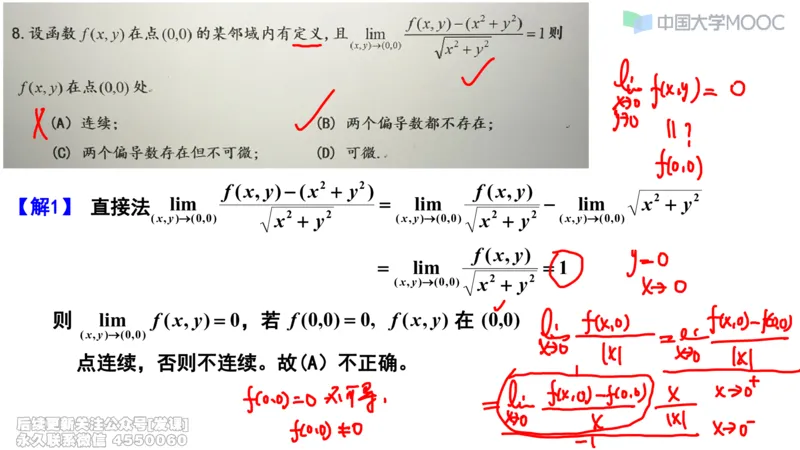 中国大学MOOC
8.设函数 f(x,y) 在点(0,0) 的某邻域内有定义,且 lim_{(x,y)→(0,0)} \frac{f(x,y)-(x²+y²)}{\sqrt{x²+y²}} =1则
f(x,y)在点(0,0) 处
(A) 连续; (B) 两个偏导数都不存在;
(C) 两个偏导数存在但不可微; (D) 可微.
lim_{x→0 y→0} f(x,y) = 0
||?
f(0,0)
【解1】 直接法 lim_{(x,y)→(0,0)} \frac{f(x,y)-(x²+y²)}{\sqrt{x²+y²}} = lim_{(x,y)→(0,0)} \frac{f(x,y)}{\sqrt{x²+y²}} - lim_{(x,y)→(0,0)} \sqrt{x²+y²}
= lim_{(x,y)→(0,0)} \frac{f(x,y)}{\sqrt{x²+y²}} = 1
y=0
x→0
则 lim_{(x,y)→(0,0)} f(x,y)=0, 若 f(0,0)=0, f(x,y) 在 (0,0)
点连续，否则不连续。故(A) 不正确。
lim_{x→0} \frac{f(x,0)}{|x|} = lim_{x→0} \frac{f(x,0)-f(0,0)}{|x|}
1
= lim_{x→0} \frac{f(x,0)-f(0,0)}{x} \frac{x}{|x|} x→0⁺
x→0⁻
-1
f(0,0)=0 不可导,
f(0,0)≠0
后续更新关注公众号[发课]
永久联系微信 4550060